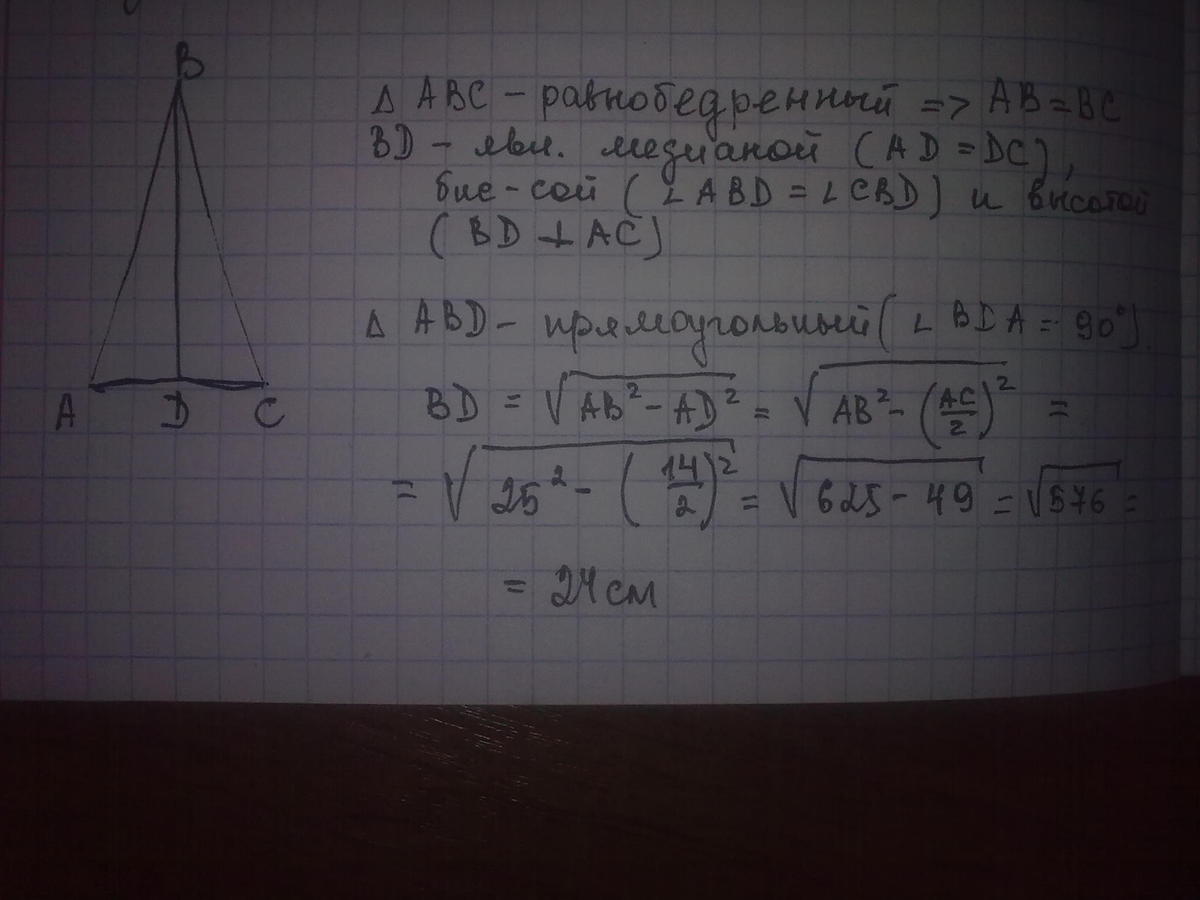 B
A D C
Δ ABC - равнобедренный => AB = BC
BD - явл. медианой (AD = DC),
бис-сой (∠ABD = ∠CBD) и высотой
(BD ⊥ AC)
Δ ABD - прямоугольный (∠BDA = 90°).
BD = √(AB² - AD²) = √(AB² - (AC/2)²) =
= √(25² - (14/2)²) = √(625 - 49) = √576 =
= 24 см